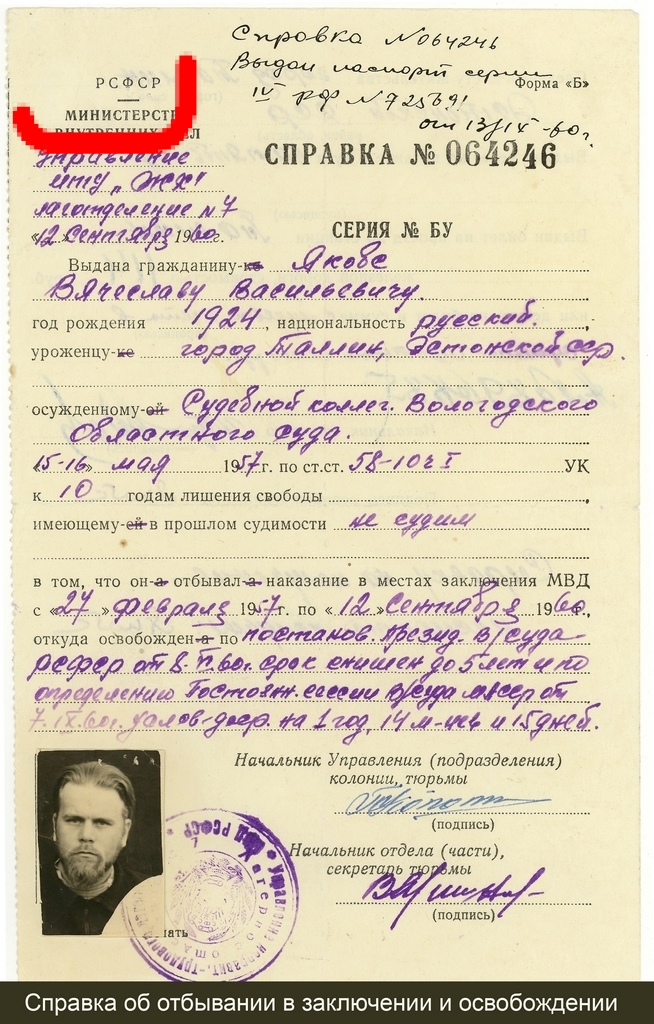 Справка №064246
Выдан паспорт серии
IV рф №725691
от 13/IX-60г.
Форма «Б»
РСФСР
МИНИСТЕРСТ
ВНУТРЕННИХ ЕЛ
Управление
ИТУ „ЖХ"
лаготделение №7
«12» сентября 1960г.
СПРАВКА № 064246
СЕРИЯ № БУ
Выдана гражданину-ке Якобс
Вячеславу Васильевичу.
год рождения 1924, национальность русский.,
уроженцу-ке город Таллин, Эстонской сср.
осужденному-ой Судебной коллег. Вологодского
Областного суда.
«15-16» мая 1957г. по ст.ст. 58-10 ч I УК
к 10 годам лишения свободы
имеющему-ей в прошлом судимости не судим
в том, что он-а отбывал-а наказание в местах заключения МВД
с «27» февраля 1957г. по «12» сентября 1960г.,
откуда освобожден-а по постанов. Презид. В/суда
РСФСР от 8. 60г. срок снижен до 5 лет и по
определению Постоян. сессии В/суда МАССР от
7.IX.60г. услов-доср. на 1 год, 14 м-цев и 15 дней.
Начальник Управления (подразделения)
колонии, тюрьмы
(подпись)
Начальник отдела (части),
секретарь тюрьмы
(подпись)
Справка об отбывании в заключении и освобождении